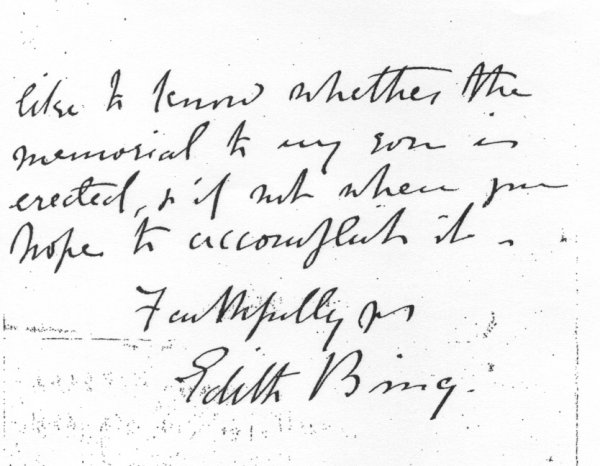 like to know whether the
memorial to my son is
erected, & if not when you
hope to accomplish it –
Faithfully yrs
Edith Bing.